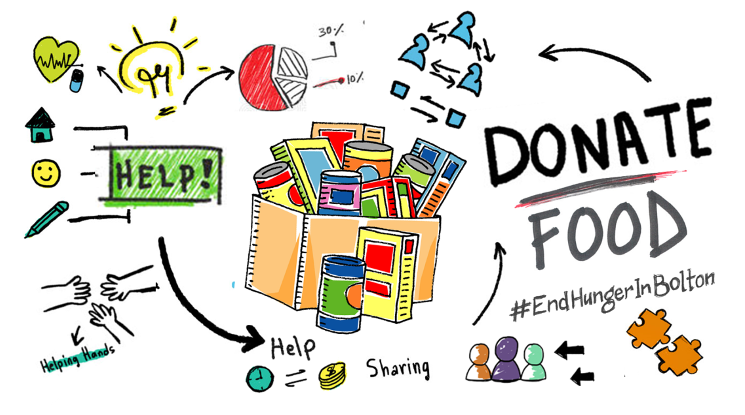 30%
10%
HELP!
DONATE
FOOD
#EndHungerInBolton
Helping Hands
Help
$
Sharing